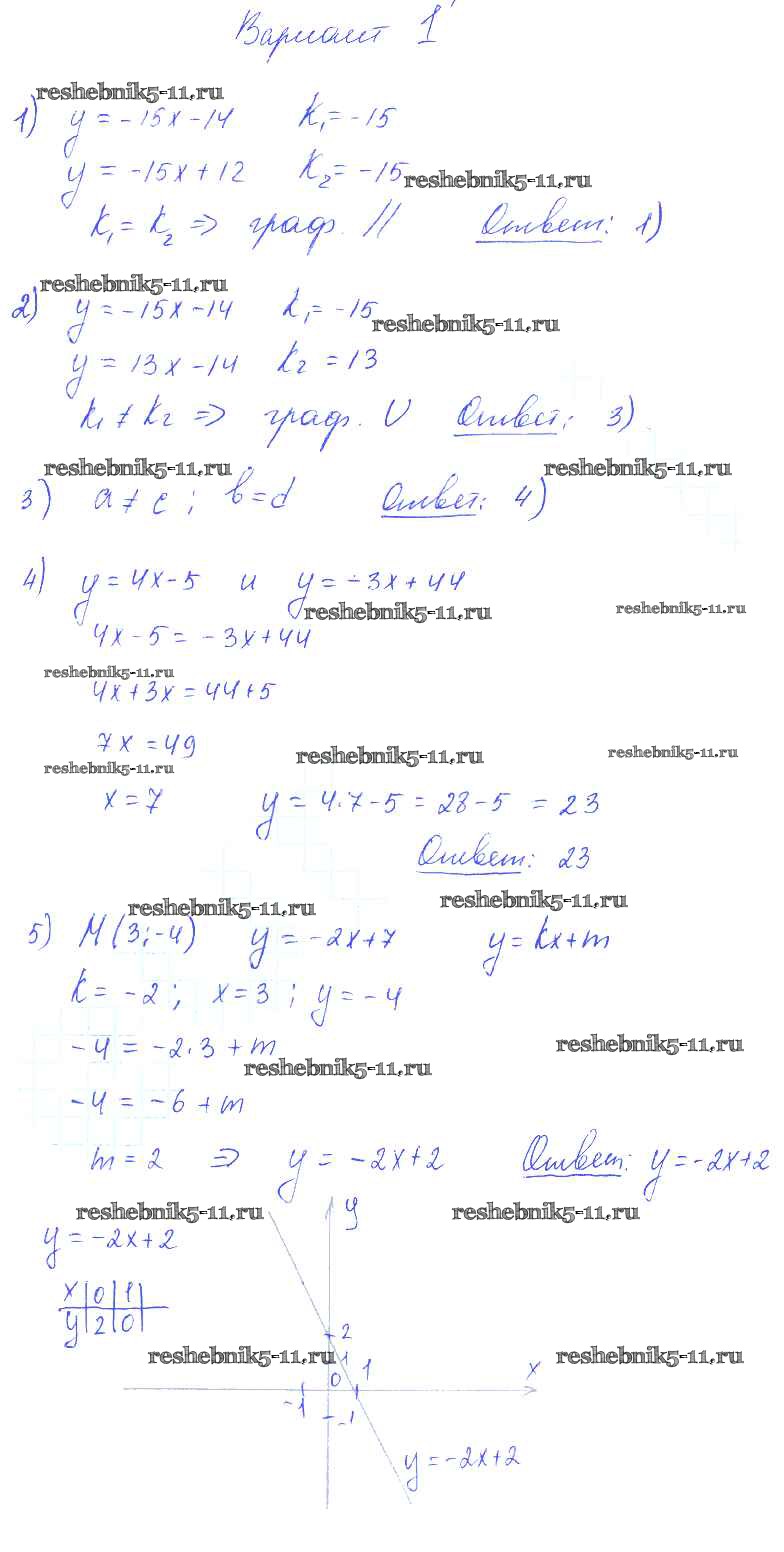 Вариант 1
reshebnik5-11.ru
1) y = -15x - 14 K₁ = -15
y = -15x + 12 K₂ = -15
reshebnik5-11.ru
K₁ = K₂ => граф. // Ответ: 1)
reshebnik5-11.ru
2) y = -15x - 14 K₁ = -15
reshebnik5-11.ru
y = 13x - 14 K₂ = 13
K₁ ≠ K₂ => граф. U Ответ: 3)
reshebnik5-11.ru reshebnik5-11.ru
3) a ≠ c ; b = d Ответ: 4)
4) y = 4x - 5 и y = -3x + 44
reshebnik5-11.ru reshebnik5-11.ru
4x - 5 = -3x + 44
reshebnik5-11.ru
4x + 3x = 44 + 5
7x = 49
reshebnik5-11.ru reshebnik5-11.ru
reshebnik5-11.ru
x = 7 y = 4·7 - 5 = 28 - 5 = 23
Ответ: 23
reshebnik5-11.ru reshebnik5-11.ru
5) M (3; -4) y = -2x + 7 y = kx + m
K = -2 ; x = 3 ; y = -4
-4 = -2·3 + m
reshebnik5-11.ru
reshebnik5-11.ru
-4 = -6 + m
m = 2 => y = -2x + 2 Ответ: y = -2x + 2
reshebnik5-11.ru y reshebnik5-11.ru
y = -2x + 2
x 0 1
y 2 0
2
reshebnik5-11.ru 1 reshebnik5-11.ru
0 1 x
-1
-1
y = -2x + 2